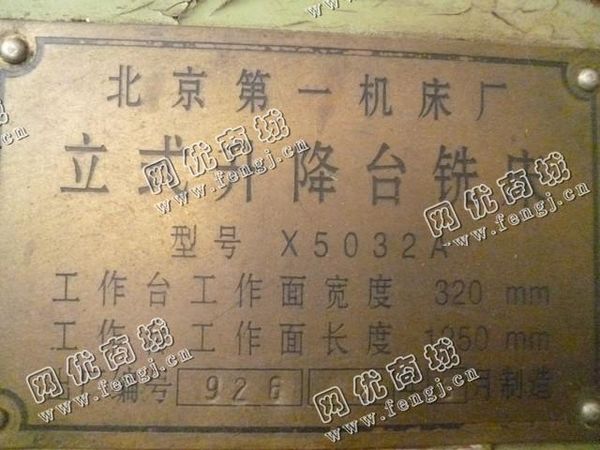 北京第一机床厂
立式升降台铣床
型号 X5032A
工作台工作面宽度 320 mm
工作台工作面长度 1250 mm
编号 928 月制造
网优商城
www.fengj.cn
网优商城
www.fengj.cn
网优商城
www.fengj.cn
网优商城
www.fengj.cn
网优商城
www.fengj.cn